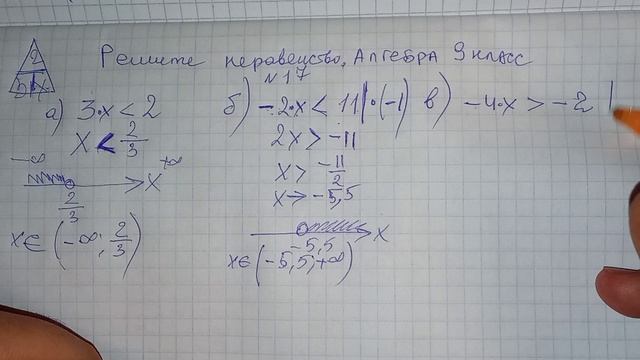 Решите неравенство, Алгебра 9 класс
N 17
а) 3·x < 2
x < 2/3
-∞ +∞
x
2/3
x∈ (-∞; 2/3)
б) -2·x < 11 |·(-1)
2x > -11
x > -11/2
x > -5,5
x
-5,5
x∈(-5,5; +∞)
в) -4·x > -2 |